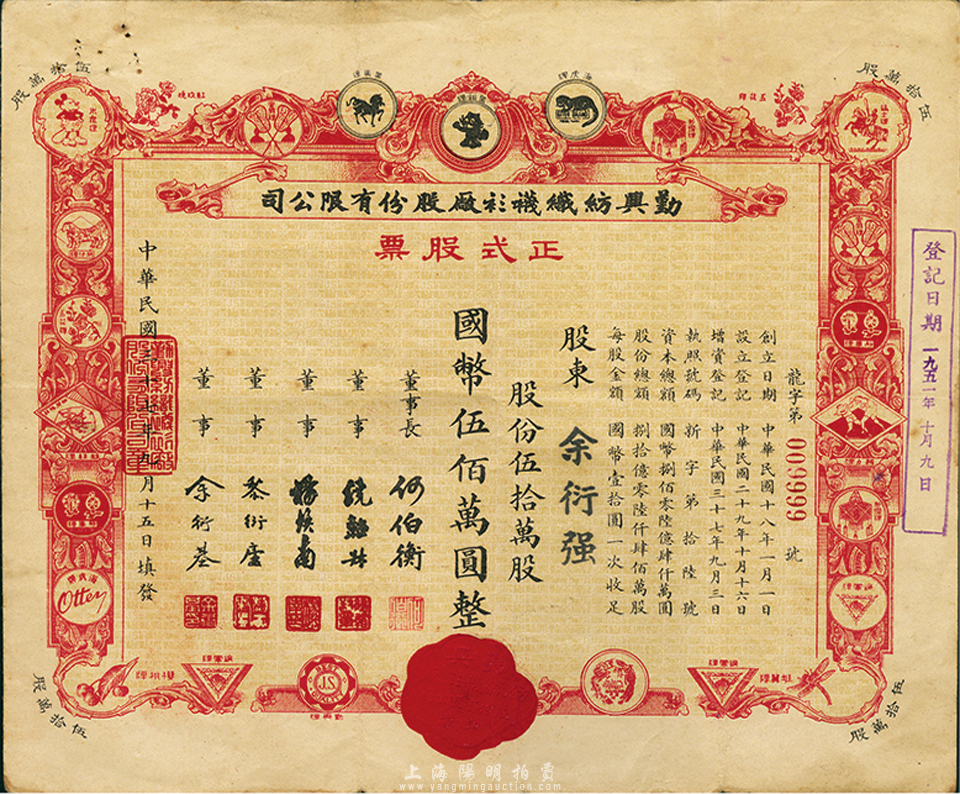 伍拾萬股
伍拾萬股
勤興紡織襪衫廠股份有限公司
正式股票
龍字第 009999 號
創立日期 中華民國十八年一月一日
設立登記 中華民國二十九年十月十六日
增資登記 中華民國三十七年九月三日
執照號碼 新字第拾陸號
資本總額 國幣捌佰零陸億肆仟萬圓
股份總額 捌拾億零陸仟肆佰萬股
每股金額 國幣壹拾圓一次收足
股東 余衍强
股份伍拾萬股
國幣伍佰萬圓整
董事長 何伯衡
董事
董事
董事 黎衍廬
董事 余衍基
中華民國三十七年九月十五日填發
登記日期 一九五一年十月九日
海虎牌
Otter
伍拾萬股
伍拾萬股
上海陽明拍賣
www.yangmingauction.com